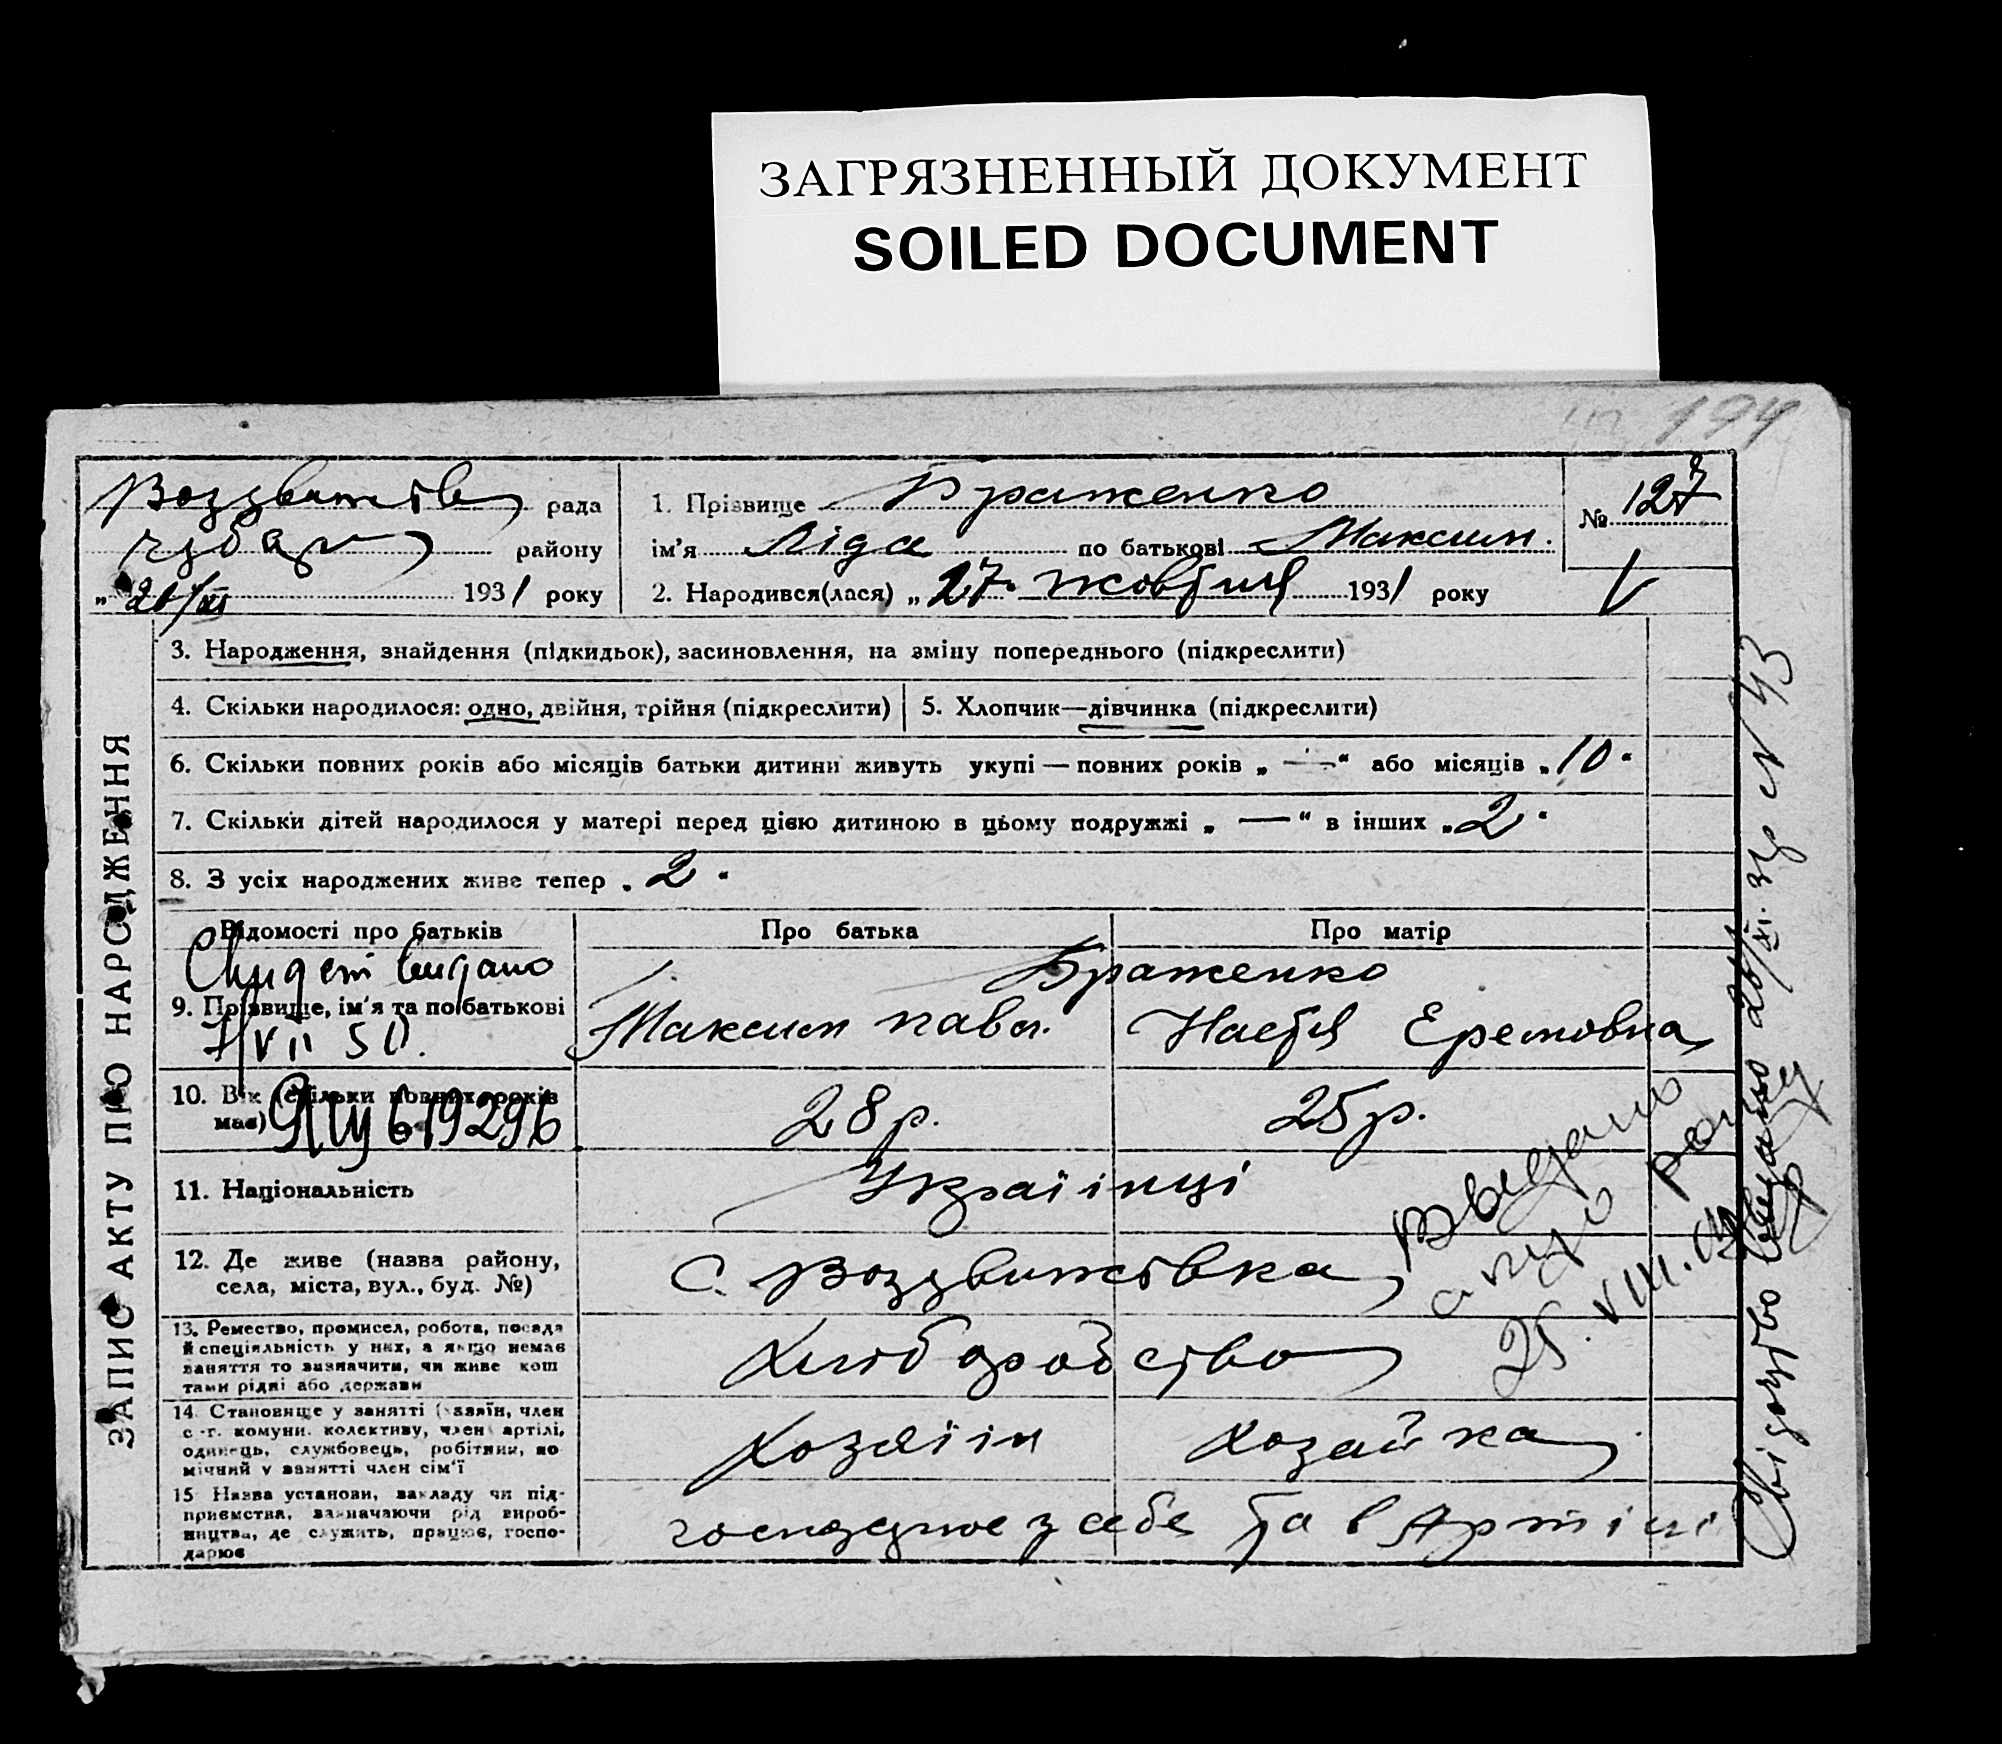 ЗАГРЯЗНЕННЫЙ ДОКУМЕНТ
SOILED DOCUMENT
194
Воздвижів рада
району
„ 20/XI 1931 року
1. Прізвище Браженко
ім'я Ліда по батькові Максим.
2. Народився(лася) „ 27. жовтня 1931 року
№ 127
ЗАПИС АКТУ ПРО НАРОДЖЕННЯ
3. Народження, знайдення (підкидьок), засиновлення, на зміну попереднього (підкреслити)
4. Скільки народилося: одно, двійня, трійня (підкреслити)
5. Хлопчик—дівчинка (підкреслити)
6. Скільки повних років або місяців батьки дитини живуть укупі — повних років „ — “ або місяців „ 10 “
7. Скільки дітей народилося у матері перед цією дитиною в цьому подружжі „ — “ в інших „ 2 “
8. З усіх народжених живе тепер „ 2 “
Відомості про батьків
Про батька
Про матір
9. Прізвище, ім'я та по батькові
Браженко
Максим Павл.
Настя Еремовна
VII 50.
10. Вік (скільки повних років має)
28 р.
25 р.
619296
11. Національність
Українці
12. Де живе (назва району,
села, міста, вул., буд. №)
с. Воздвижівка
13. Ремество, промисел, робота, посада
й спеціяльність у них, а якщо немає
заняття то зазначити, чи живе кош
тами рідні або держави
Хліборобство
14. Становище у занятті (хазяїн, член
с.-г. комуни, колективу, член артілі,
одинець, службовець, робітник, по
мічний у занятті член сім'ї
Хозяїін
Хозяйка
15 Назва установи, закладу чи під-
приємства, зазначаючи рід вироб-
ництва, де служить, працює, госпо-
дарює
у себе та в Артілі
Выдано
25. VIII.
Свідоцтво видано 20/XI. 31 р №43